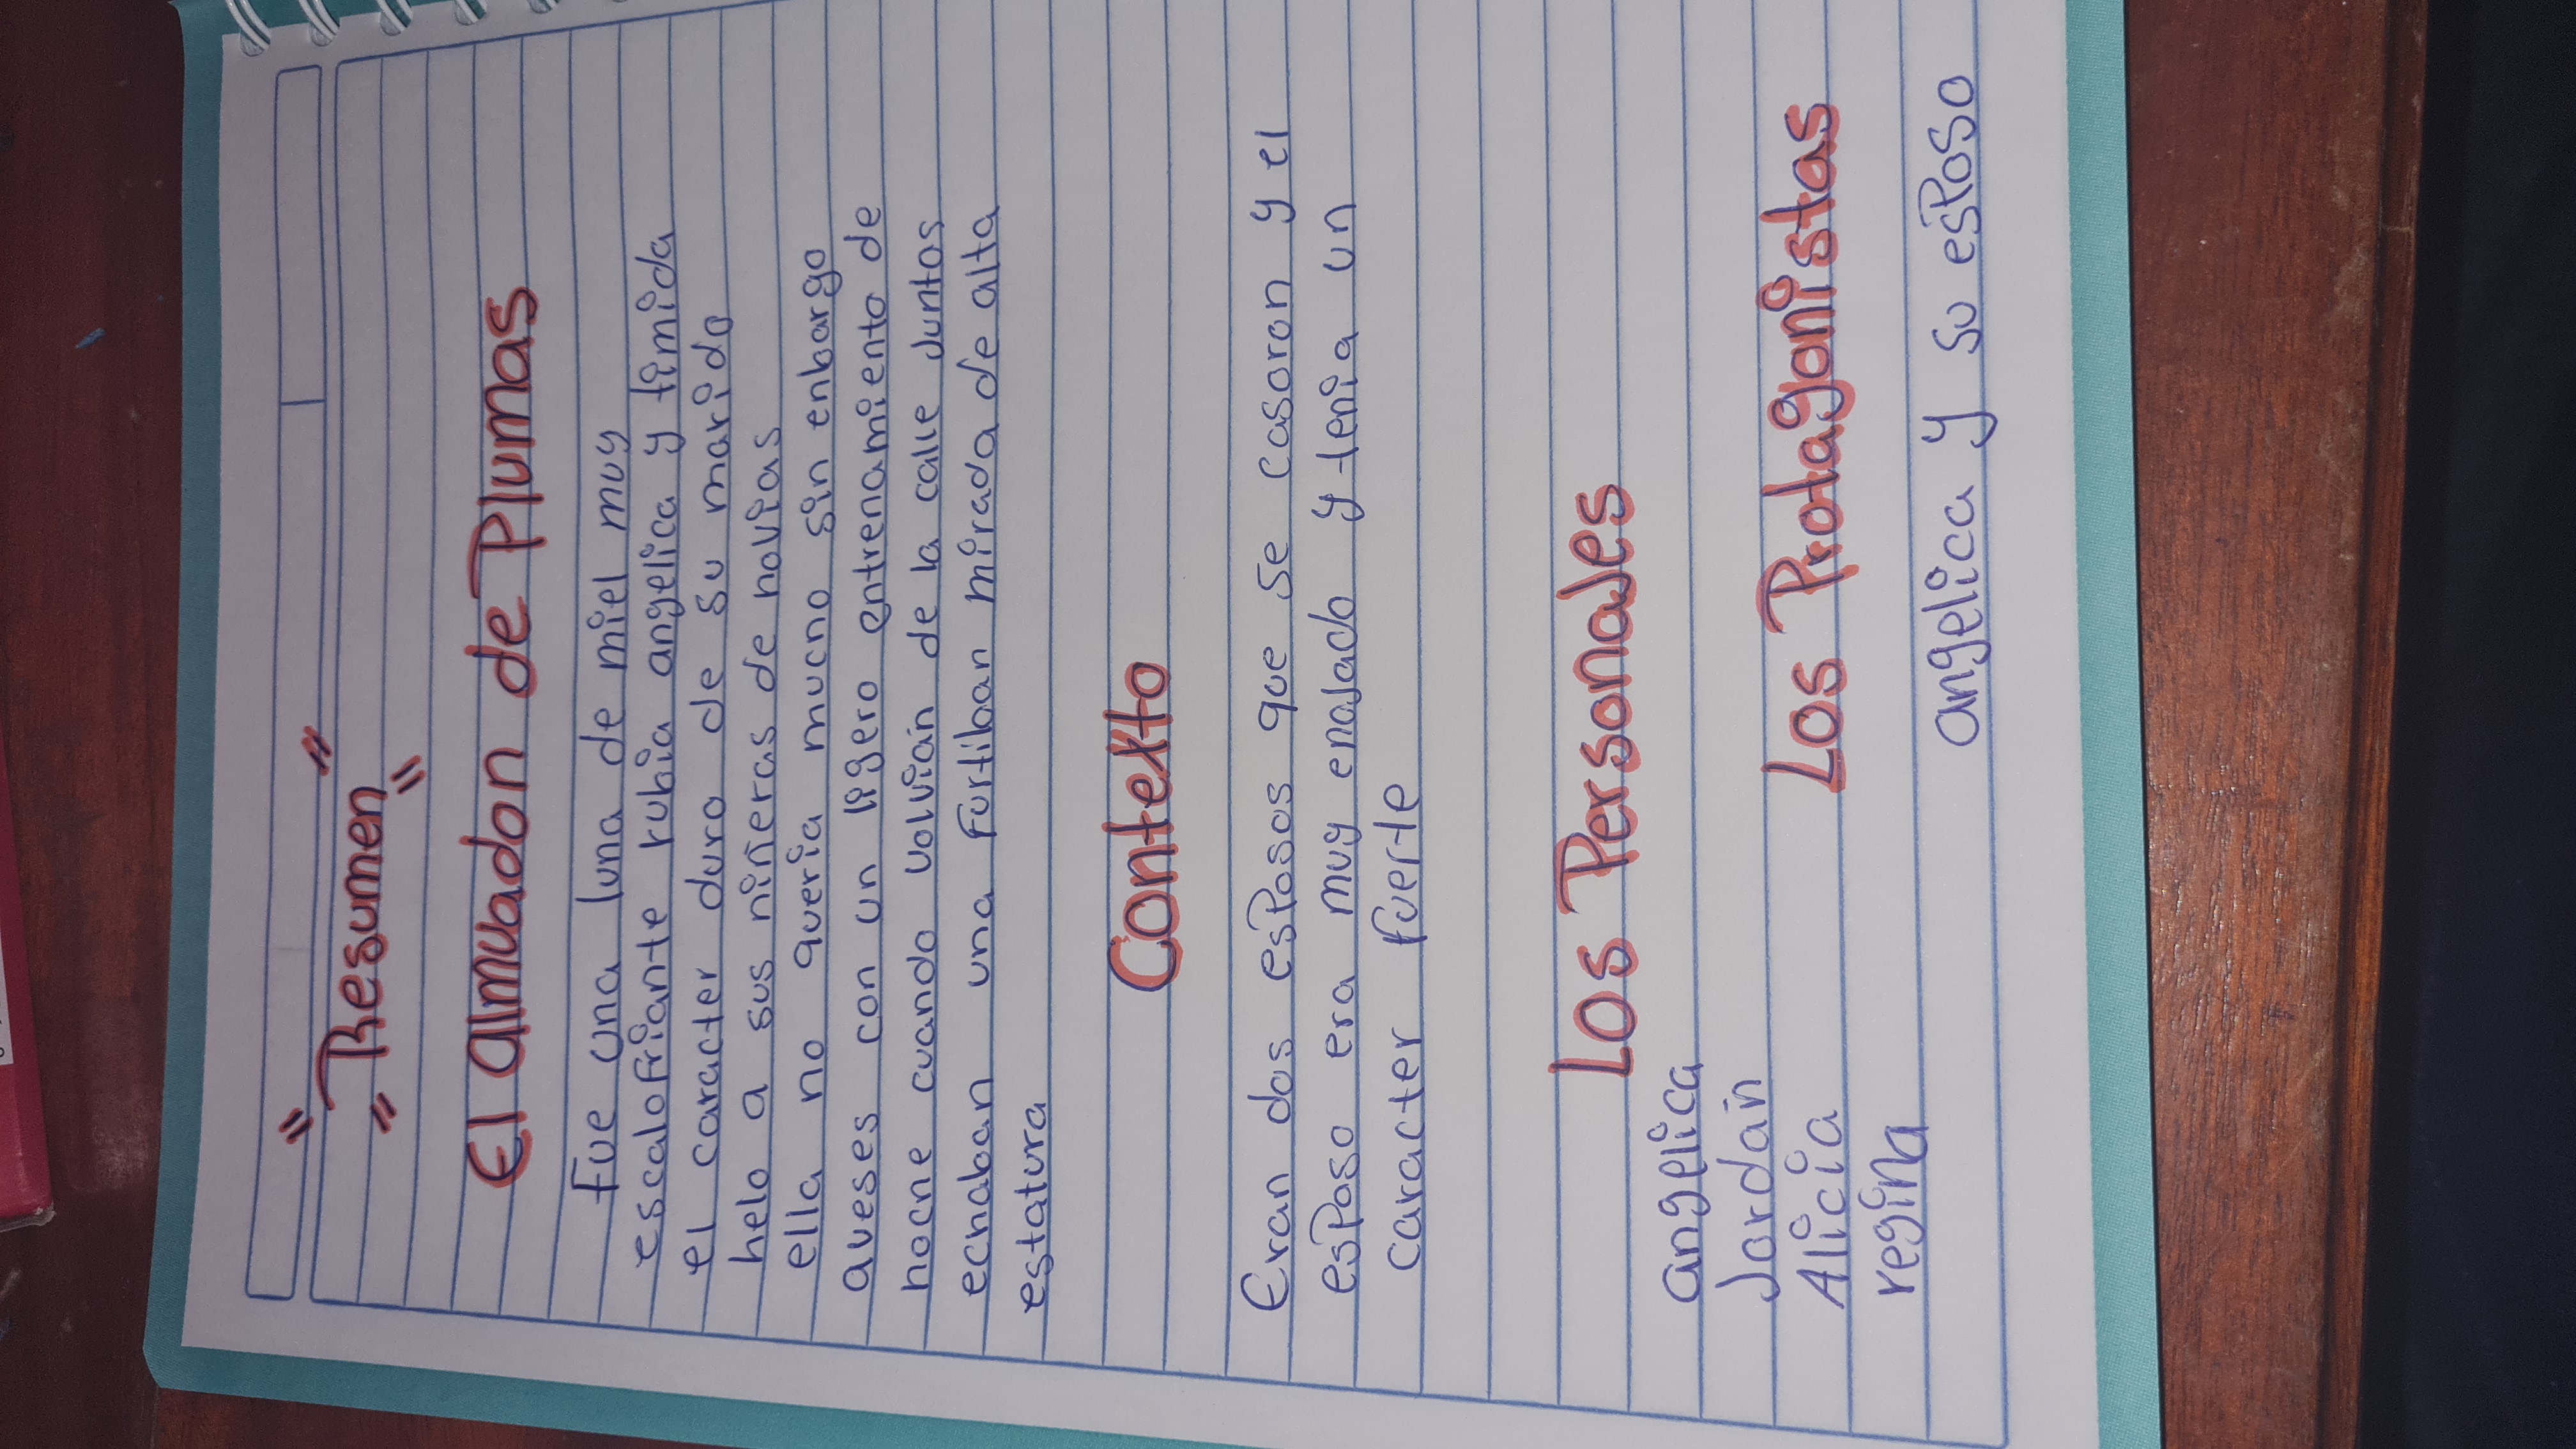 "Resumen"
El almuadon de Plumas
Fue una luna de miel muy
escalofriante rubia angelica y timida
el caracter duro de su marido
helo a sus niñeras de novias
ella no queria mucno sin enbargo
aveses con un ligero entrenamiento de
nocne cuando volvian de la calle Juntos
ecnaban una furtiban mirada de alta
estatura
Contexto
Eran dos esPosos que se casoron y el
esPoso era muy enoJado y tenia un
caracter fuerte
Los PersonaJes
angelica
Jordan
Alicia
regina
Los Protagonistas
angelica y su esPoso